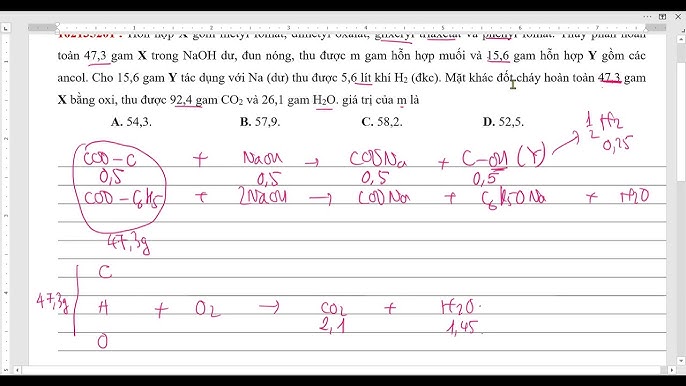 162155201 : Hỗn hợp X gồm metyl fomat, dimetyl oxalat, glixeryl triaxetat và phenyl fomat. Thủy phân hoàn
toàn 47,3 gam X trong NaOH dư, đun nóng, thu được m gam hỗn hợp muối và 15,6 gam hỗn hợp Y gồm các
ancol. Cho 15,6 gam Y tác dụng với Na (dư) thu được 5,6 lít khí H2 (đkc). Mặt khác đốt cháy hoàn toàn 47,3 gam
X bằng oxi, thu được 92,4 gam CO2 và 26,1 gam H2O. giá trị của m là
A. 54,3. B. 57,9. C. 58,2. D. 52,5.
1/2 H2
0,25
COO-C + NaOH → COONa + C-OH (Y)
0,5 0,5 0,5 0,5
COO-C6H5 + 2NaOH → COONa + C6H5ONa + H2O
47,3g
C
47,3g H + O2 → CO2 + H2O
2,1 1,45
O